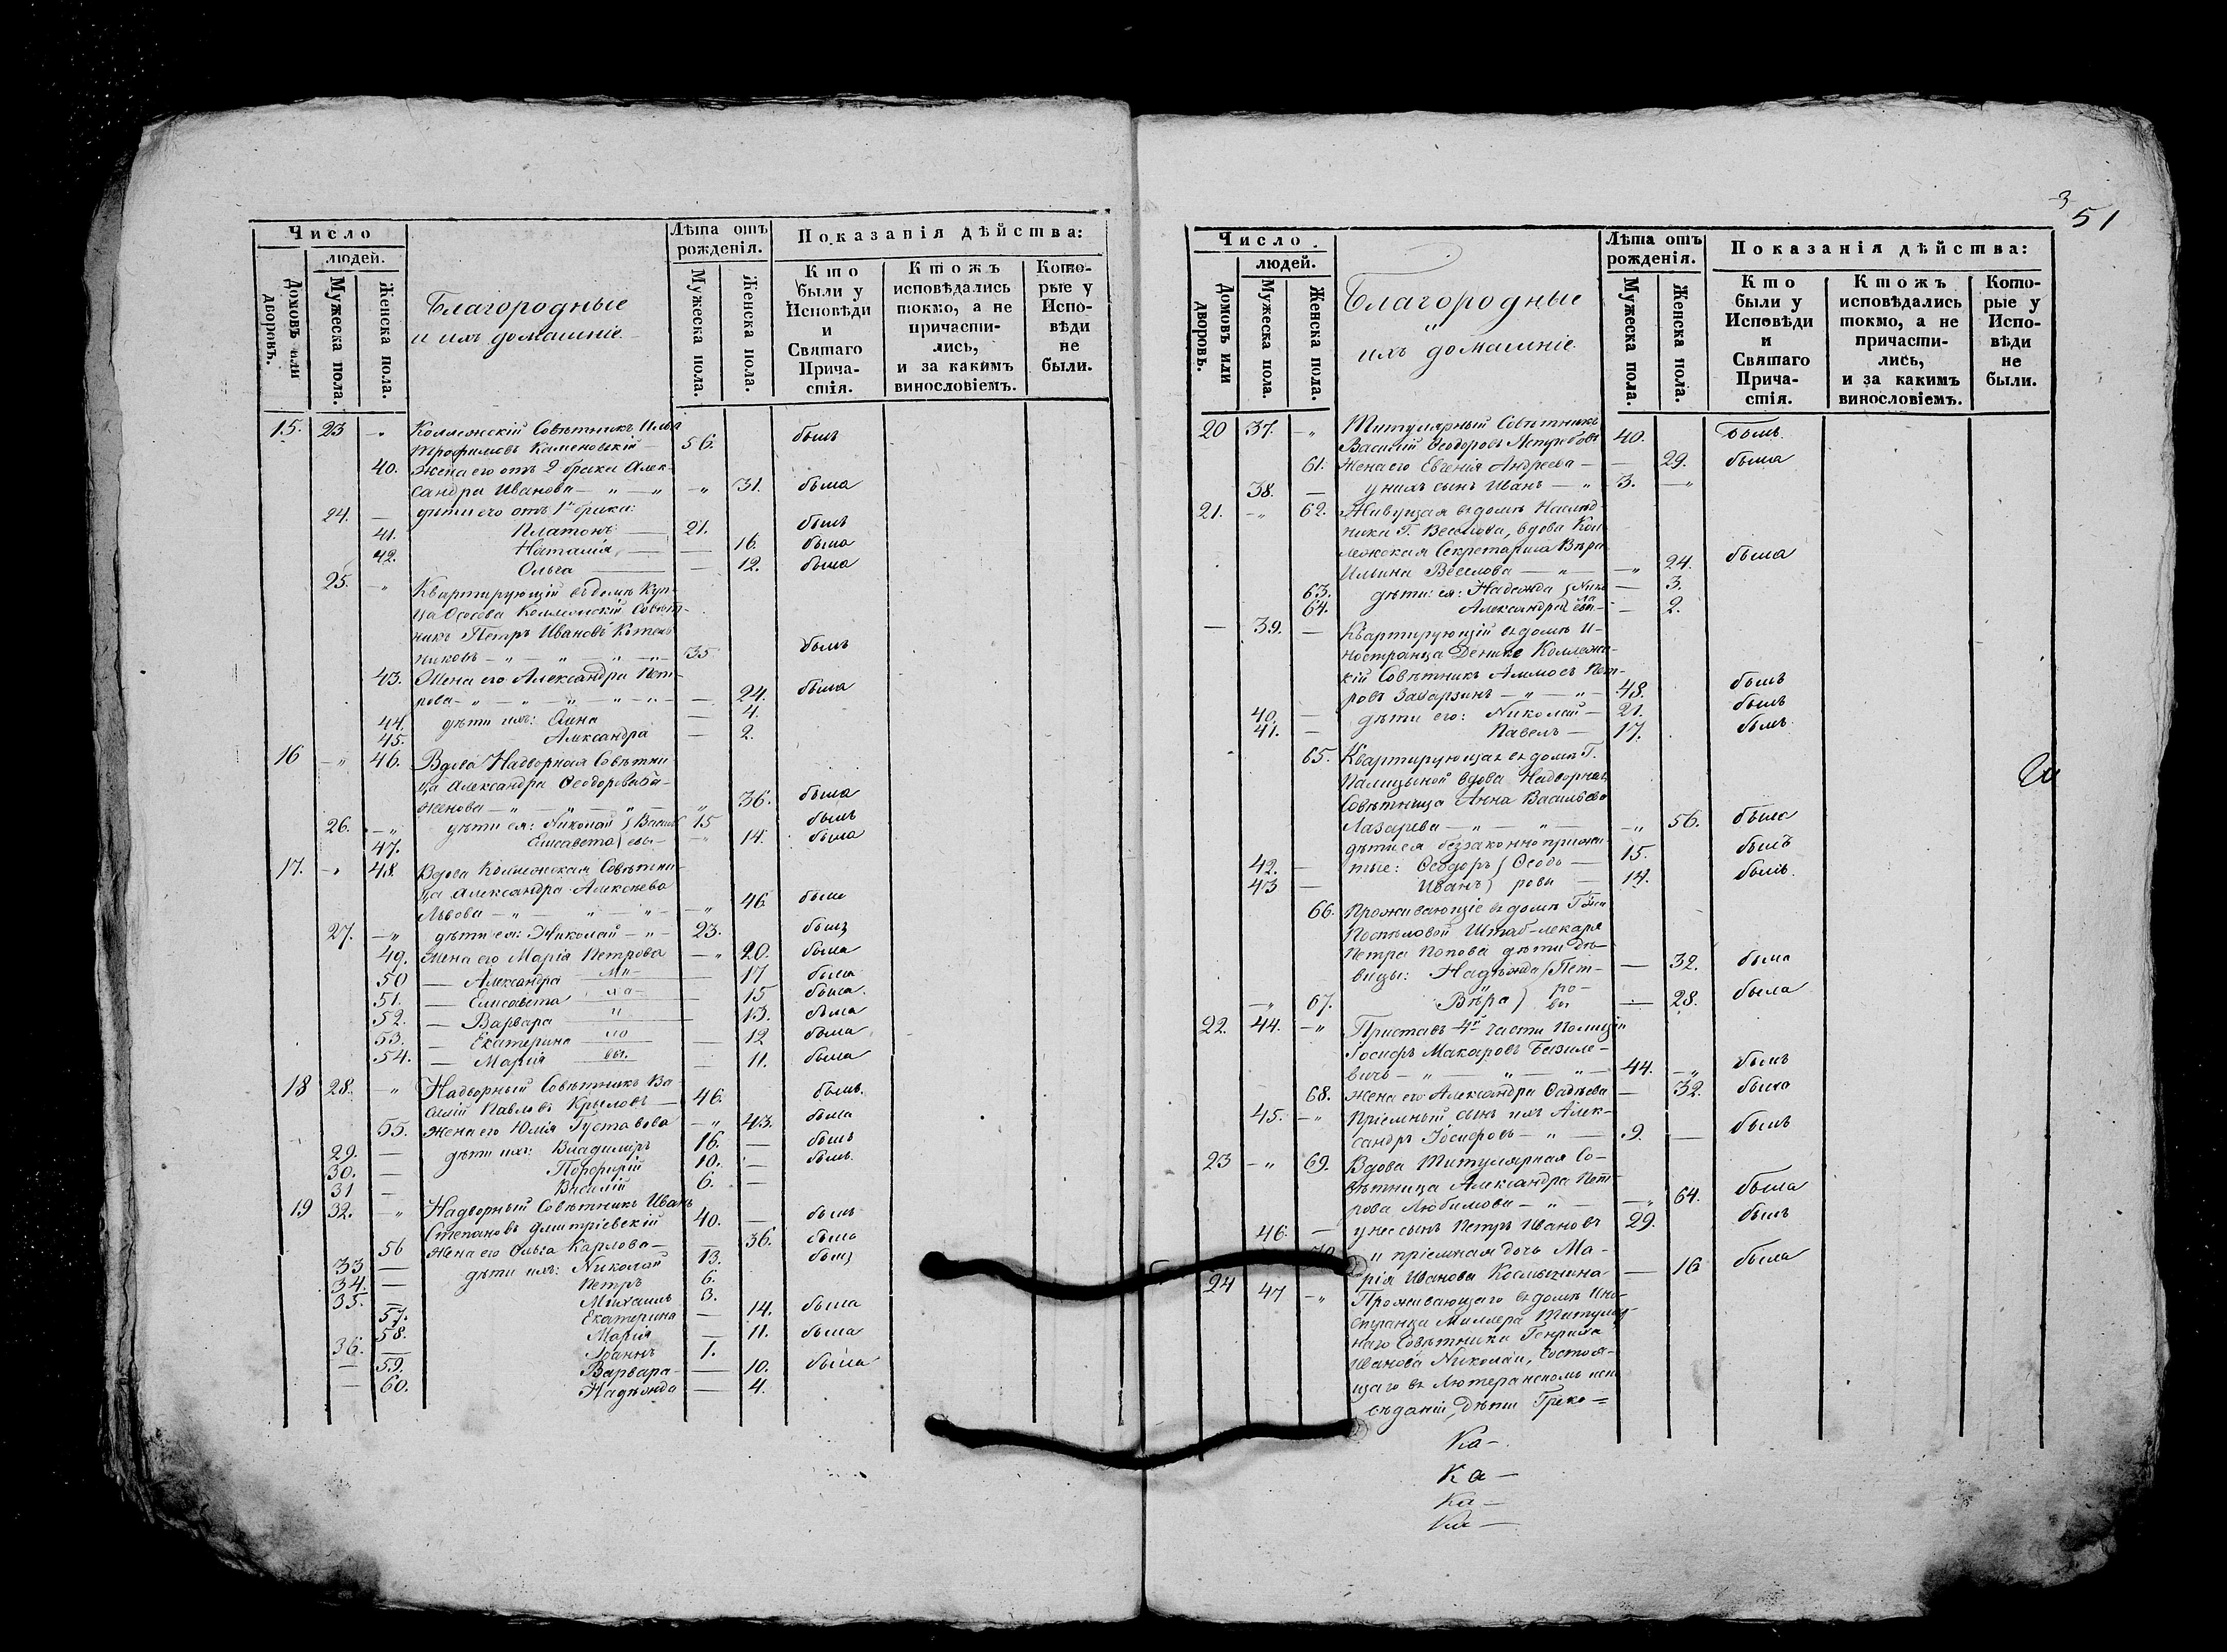 Число
людей.
Домовъ или дворовъ.
Мужеска пола.
Женска пола.
Благородные
и ихъ домашніе.
Лѣта отъ рожденія.
Мужеска пола.
Женска пола.
Показанія дѣйства:
Кто были у Исповѣди и Святаго Причастія.
Ктожъ исповѣдались токмо, а не причастились, и за какимъ винословіемъ.
Которые у Исповѣди не были.
15. 23 -„ Коллежскій Совѣтникъ Илья
Трофимовъ Каменовскій 56. былъ
40. Жена его отъ 2 брака Алек-
сандра Иванова — „ — „ -„ 31. была
24. — дѣти его отъ 1го брака:
41. Платонъ — 21. былъ
42. Наталія — — 16. была
Ольга — — 12. была
25. -„ Квартирующій въ домѣ Куп-
ца Коллежскій Совѣт-
никъ Петръ Ивановъ Котель
никовъ — „ — „ — „ — 35 былъ
43. Жена его Александра Пет-
рова — „ — „ — „ — — 24. была
44. дѣти ихъ: Анна — 4.
45. Александра — 2.
16 -„ 46. Вдова Надворная Совѣтни-
ца Александра Ѳеодорова Ба-
женова — „ — „ — „ — „ 36. была
26. -„ дѣти ея: Николай } Василь 15 былъ
47. Елисавета } евы — -„ 14. была
17. -„ 48. Вдова Коллежская Совѣтни-
ца Александра Алексѣева
Львова — „ — „ — „ — -„ 46 была
27. -„ дѣти ея: Николай — „ — 23. былъ
49. Жена его Марія Петрова -„ 20. была
50 — Александра Ми- — 17 была
51. — Елисавета ха- — 15 была.
52. — Варвара и — 13. была
53. — Екатерина ло — 12 была
54. — Марія вы. — 11. была
18 28. -„ Надворный Совѣтникъ Ва-
силій Павловъ Крыловъ — 46. былъ.
55. Жена его Юлія Густавова -„ 43. была
29. — дѣти ихъ: Владиміръ 16. — былъ
30. — Порфирій 10. — былъ
31 — Василій 6. —
19 32. -„ Надворный Совѣтникъ Иванъ
Степановъ Дмитріевскій 40. — былъ
56 Жена его Ольга Карлова — — 36. была
33 — дѣти ихъ: Николай 13. былъ
34. — Петръ 6.
35. — Михаилъ 3.
57. Екатерина — 14. была
58. Марія — 11. была
36. — Іоаннъ 1.
— 59. Варвара — — 10. была
— 60. Надежда — 4.
3
51
Число
людей.
Домовъ или дворовъ.
Мужеска пола.
Женска пола.
Благородные
и
ихъ домашніе.
Лѣта отъ рожденія.
Мужеска пола.
Женска пола.
Показанія дѣйства:
Кто были у Исповѣди и Святаго Причастія.
Ктожъ исповѣдались токмо, а не причастились, и за какимъ винословіемъ.
Которые у Исповѣди не были.
20 37. -„ Титулярный Совѣтникъ
Василій Ѳеодоровъ 40. былъ.
61. Жена его Евгенія Андреева — — 29. была
38. — у нихъ сынъ Иванъ — „ 3. -„
21. -„ 62. Живущая въ домѣ Наслѣд
ника Г. Веселова, вдова Кол
лежская Секретарша Вѣра
Ильина Веселова — „ — -„ 24. была
63. дѣти ея: Надежда } Нико — 3.
64. Александра } ла евы — — 2.
— 39. — Квартирующій въ домѣ И-
ностранца Коллежс-
кій Совѣтникъ Пет-
ровъ — „ — „ 48. былъ
40. — дѣти его: Николай — 21. былъ
41. — Павелъ — 17. былъ
65. Квартирующая въ домѣ Г.
Палицыной вдова Надворная
Совѣтница Анна Васильева
Лазарева — „ — „ — -„ 56. была
дѣти ея беззаконно прижи
42. — тые: Ѳеодоръ } Ѳеодо — 15. былъ
43 — Иванъ } ровы — 14. былъ.
66. Проживающіе въ домѣ Гжи
Поспѣловой Штаб-лекаря
Петра Попова дѣти дѣ-
вицы: Надежда } Пет- — 32. была
-„ 67. Вѣра } ро- вы — 28. была
22. 44. -„ Приставъ 4й части Полиціи
Іосифъ Макаровъ Базиле-
вичъ — „ — „ — „ — 44. -„ былъ
68. Жена его Александра Ѳадѣева — 32. была
45. -„ Пріемный сынъ ихъ Алек-
сандръ Іосифовъ — „ — 9. — былъ
23 -„ 69. Вдова Титулярная Со-
вѣтница Александра Пет-
рова Любимова — „ — -„ 64. была
46. — у нее сынъ Петръ Ивановъ 29. былъ
70. и пріемная дочь Ма-
рія Иванова Космынина — 16 была
24 47 -„ Проживающаго въ домѣ Ино-
странца Миллера Титуляр
наго Совѣтника Генриха
Иванова Николаи, состоя-
щаго въ Лютеранскомъ испо
вѣданіи, дѣти Греко=
Ка-
Ка-
Ка-
Ка-